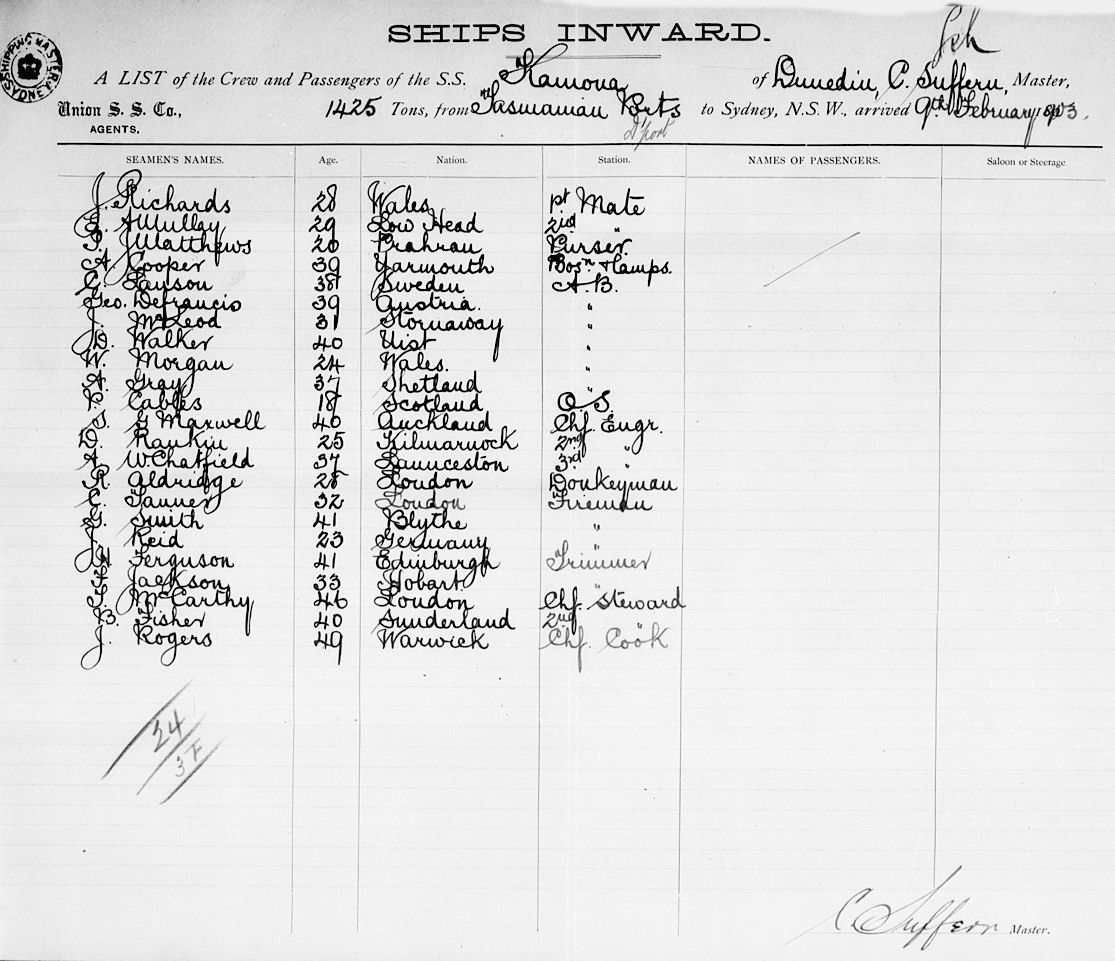 SHIPPING MASTER SYDNEY
SHIPS INWARD.
Feb
A LIST of the Crew and Passengers of the S.S. Kamona of Dunedin, C. Suffern, Master,
Union S. S. Co., 1425 Tons, from Tasmanian Ports to Sydney, N.S.W., arrived 9th February 1903.
AGENTS.
SEAMEN'S NAMES. Age. Nation. Station. NAMES OF PASSENGERS. Saloon or Steerage
J. Richards 28 Wales 1st Mate
A Mulley 29 Low Head 2nd "
J Matthews 20 Prahran Purser
A. Cooper 39 Yarmouth Bosn & Lamps.
C. Lawson 38 Sweden A.B.
Geo. Defrancis 39 Austria. "
J. McLeod 31 Stornaway "
D. Walker 40 Uist "
W. Morgan 24 Wales. "
A. Gray 37 Shetland "
P. Eables 18 Scotland O S.
S. G Maxwell 40 Auckland Chf. Engr.
D. Rankin 25 Kilmarnock 2nd "
A. W. Chatfield 37 Launceston 3rd "
R. Aldridge 28 London Donkeyman
C. Tanner 32 London Fireman
G. Smith 41 Blythe "
J Reid 23 Germany "
J H Ferguson 41 Edinburgh Trimmer
F Jackson 33 Hobart "
J. McCarthy 46 London Chf. Steward
B. Fisher 40 Sunderland 2nd "
J. Rogers 49 Warwick Chf. Cook
24
3 F
C. Suffern Master.